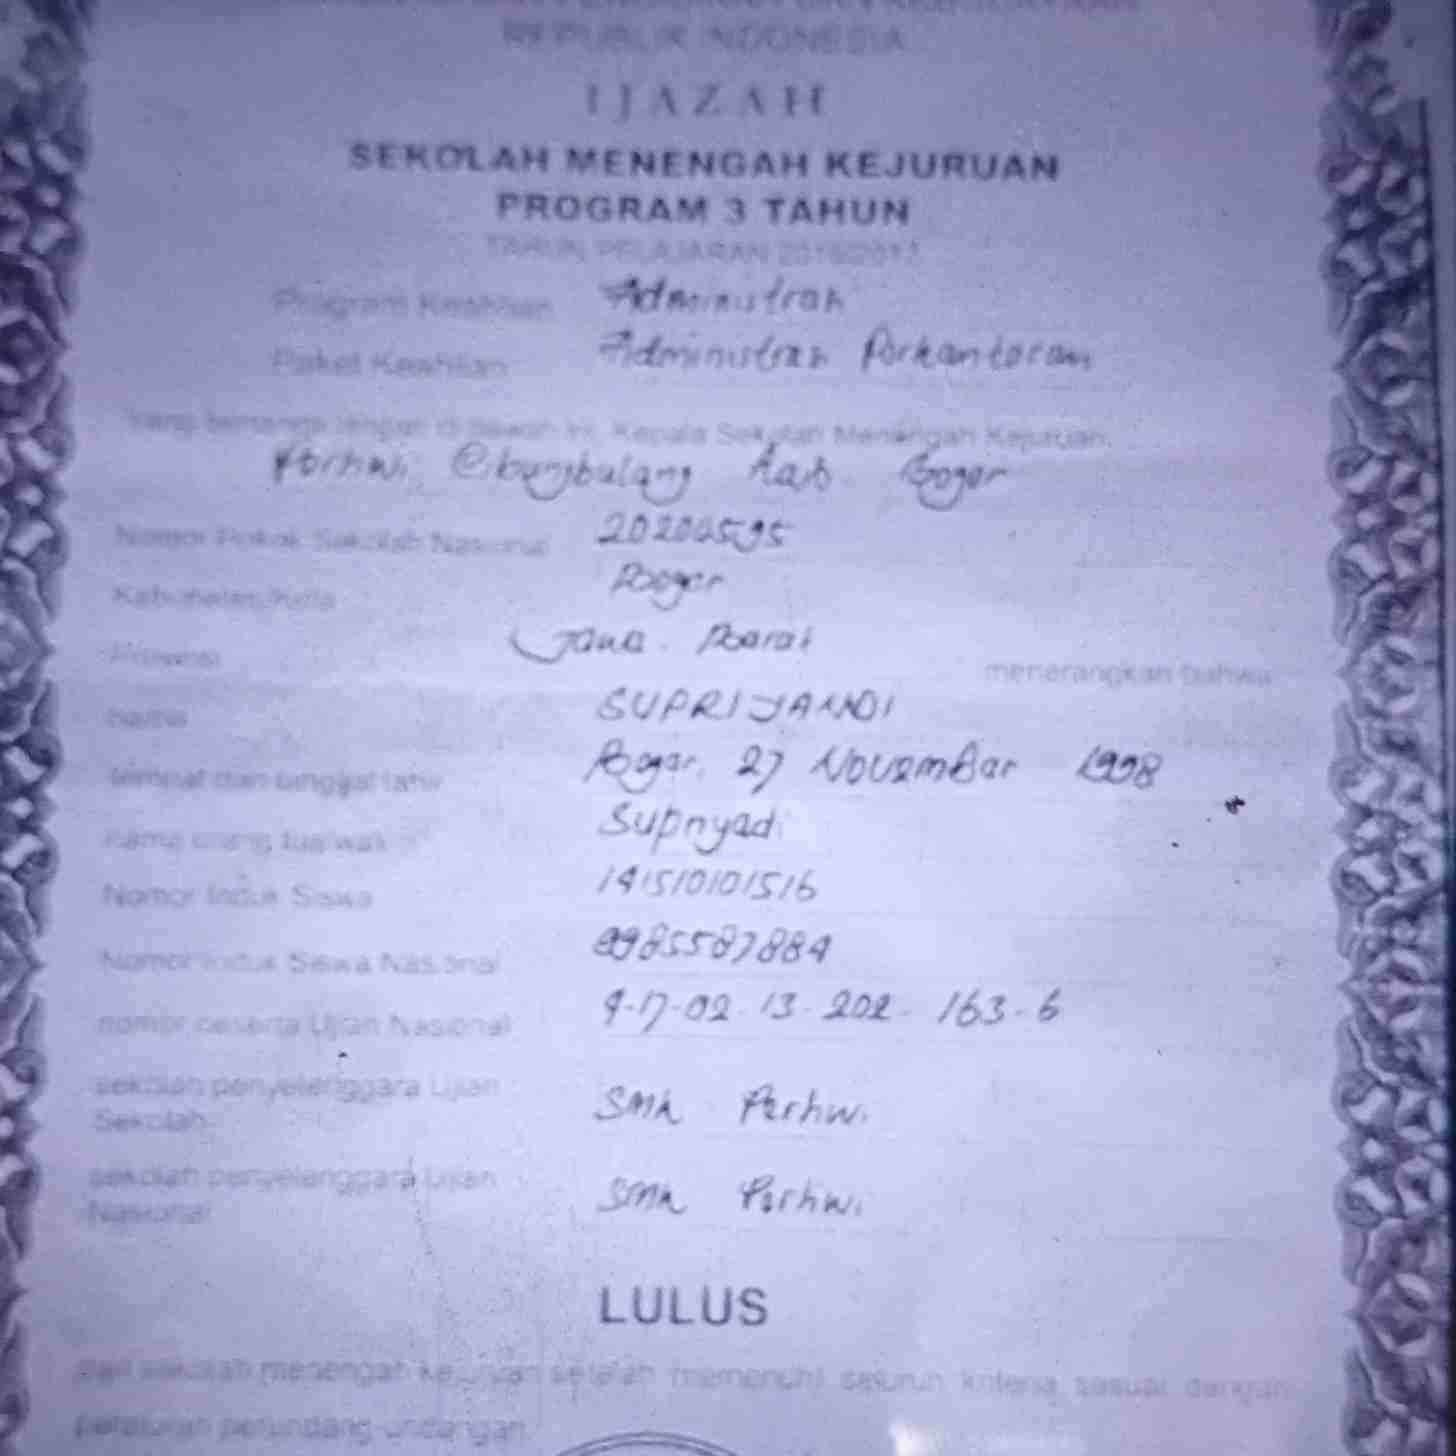 REPUBLIK INDONESIA
IJAZAH
SEKOLAH MENENGAH KEJURUAN
PROGRAM 3 TAHUN
TAHUN PELAJARAN 2016/2017
Program Keahlian Administrasi
Paket Keahlian Administrasi Perkantoran
Yang bertanda tangan di bawah ini, Kepala Sekolah Menengah Kejuruan
Perhwi Cibungbulang Kab. Bogor
Nomor Pokok Sekolah Nasional
Kabupaten/Kota Bogor
Provinsi Jawa Barat menerangkan bahwa
nama SUPRIYANDI
tempat dan tanggal lahir Bogor, 27 November 1998
nama orang tua/wali Supriyadi
Nomor Induk Siswa 141510101516
Nomor Induk Siswa Nasional 9985587884
nomor peserta Ujian Nasional 4-17-02-13-202-163-6
sekolah penyelenggara Ujian
Sekolah SMK Perhwi
sekolah penyelenggara Ujian
Nasional SMK Perhwi
LULUS
dari sekolah menengah kejuruan setelah memenuhi seluruh kriteria sesuai dengan
peraturan perundang-undangan